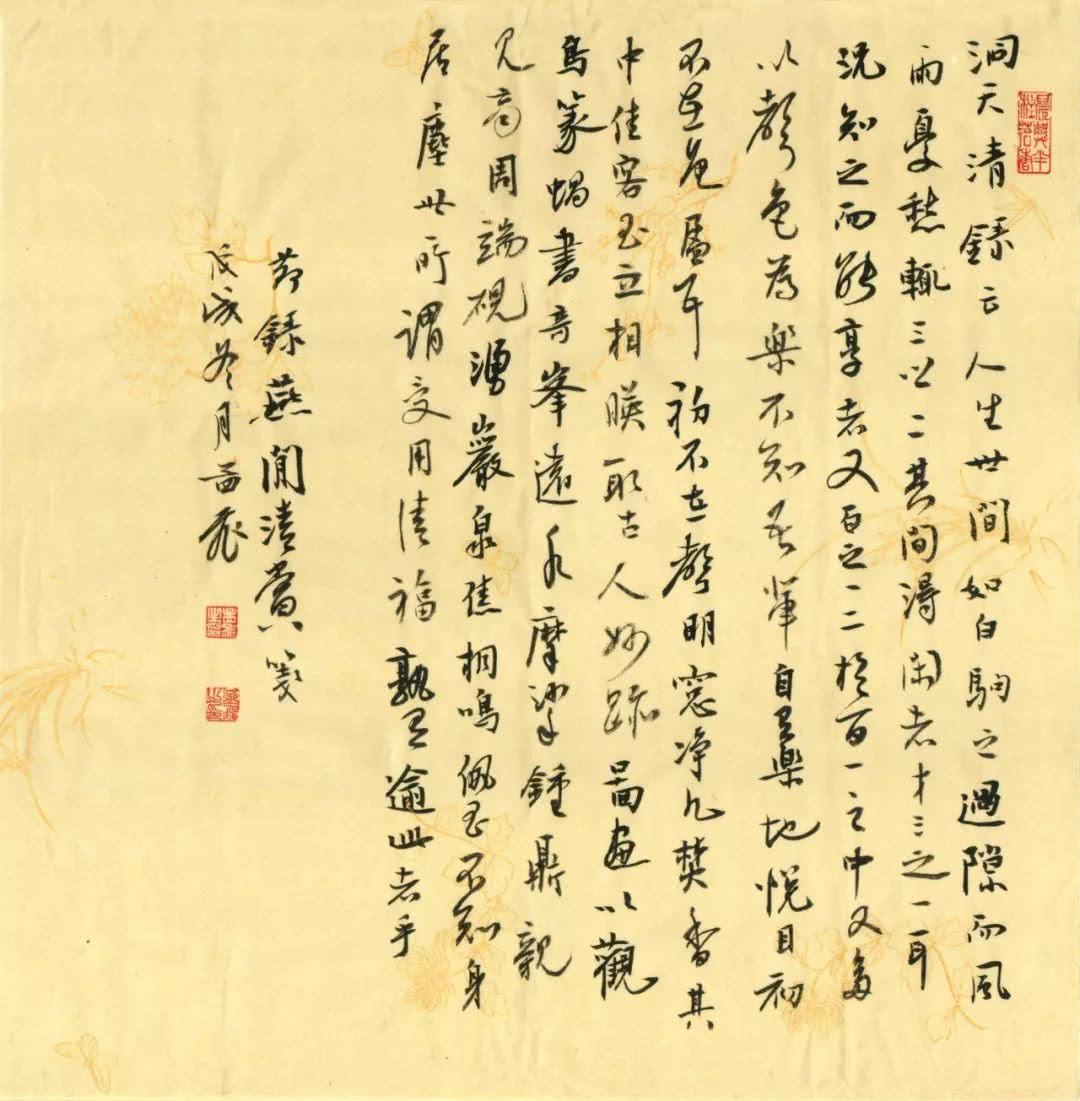 洞天清錄云人生世間如白駒之過隙而風
雨憂愁輒三之二其間得閑者才三之一耳
況知之而能享者又百之一二於百一之中又多
以聲色為樂不知吾輩自有樂地悅目初
不在色盈耳初不在聲明窓净几焚香其
中佳客玉立相暎取古人妙跡圖畫以觀
鳥篆蝸書奇峯遠水摩挲鍾鼎親
見商周端硯湧巖泉焦桐鳴佩玉不知身
居塵世所謂受用清福孰有逾此者乎
節錄燕閒清賞箋
戊戌冬月